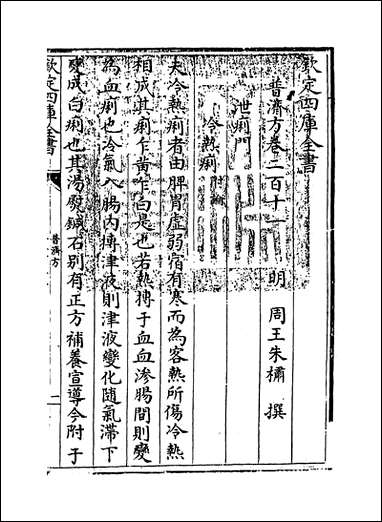 欽定四庫全書
普濟方卷二百十一
明 周王朱橚 撰
泄痢門
冷熱痢附論
夫冷熱痢者由脾胃虛弱宿有寒而為客熱所傷冷熱
相成其痢乍黃乍白是也若熱搏于血血滲腸間則變
為血痢也冷氣入腸內搏津液則津液變化隨氣滯下
變成白痢也其湯熨鍼石别有正方補養宣導今附于
欽定四庫全書
普濟方
一